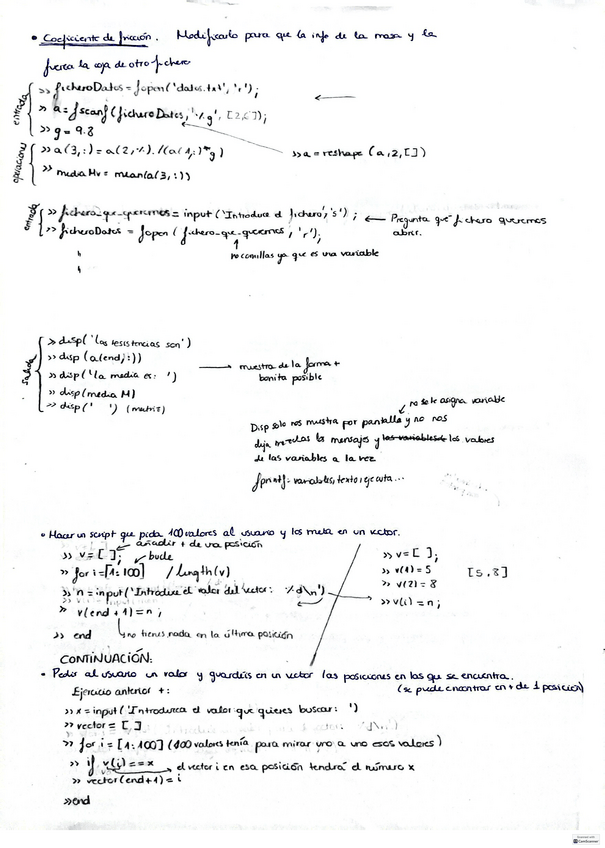 • Coeficiente de fricción. Modificarlo para que la info de la masa y la
fuerza la coja de otro fichero
entrada
>> ficheroDatos = fopen('datos.txt', 'r');
>> a = fscanf(ficheroDatos, '%g', [2,[]);
>> g = 9.8
operaciones
>> a(3,:) = a(2,:)./(a(1,:)*g)
>> a = reshape (a,2,[])
>> mediaMv = mean(a(3,:))
entrada
>> fichero_que_queremos = input ('Introduce el fichero', 's'); ← Pregunta que fichero queremos
abrir.
>> ficheroDatos = fopen (fichero_que_queremos, 'r');
no comillas ya que es una variable
salida
>> disp('las resistencias son')
>> disp (a(end,:))
>> disp('la media es: ')
>> disp(media M)
>> disp(' ') (matriz)
→ muestra de la forma +
bonita posible
no se le asigna variable
Disp solo nos muestra por pantalla y no nos
deja mezclar los mensajes y los variables los valores
de las variables a la vez
fprintf: variables, texto, ejecuta...
• Hacer un script que pida 100 valores al usuario y los meta en un vector.
añadir + de una posición
>> v = [ ]; bucle
>> for i=[1:100] / length(v)
>> n = input('Introduce el valor del vector: %d\n')
>> v(end+1) = n;
no tienes nada en la última posición
>> end
>> v = [ ];
>> v(1) = 5
>> v(2) = 8
[5,8]
>> v(i) = n;
CONTINUACIÓN:
• Pedir al usuario un valor y guardéis en un vector las posiciones en las que se encuentra.
(se puede encontrar en + de 1 posición)
Ejercicio anterior +:
>> x = input('Introduzca el valor que quieres buscar: ')
>> vector = [ ]
>> for i = [1:100] (100 valores tenía para mirar uno a uno esos valores)
>> if v(i) == x → el vector i en esa posición tendrá el número x
>> vector(end+1) = i
>> end
CamScanner